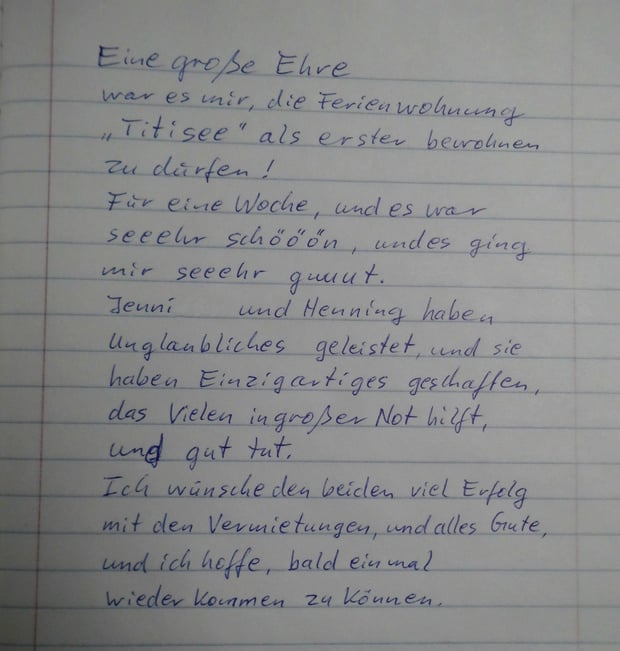 Eine große Ehre
war es mir, die Ferienwohnung
„Titisee“ als erster bewohnen
zu dürfen!
Für eine Woche, und es war
seeehr schööön, und es ging
mir seeehr guuut.
Jenni und Henning haben
Unglaubliches geleistet, und sie
haben Einzigartiges geschaffen,
das Vielen in großer Not hilft,
und gut tut.
Ich wünsche den beiden viel Erfolg
mit den Vermietungen, und alles Gute,
und ich hoffe, bald einmal
wieder kommen zu können.